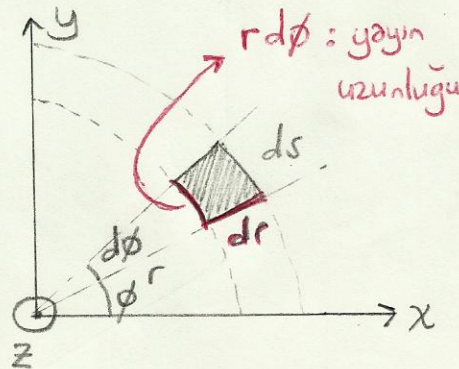 y
r dφ : yayın
uzunluğu
ds
dr
dφ
φ r
x
z